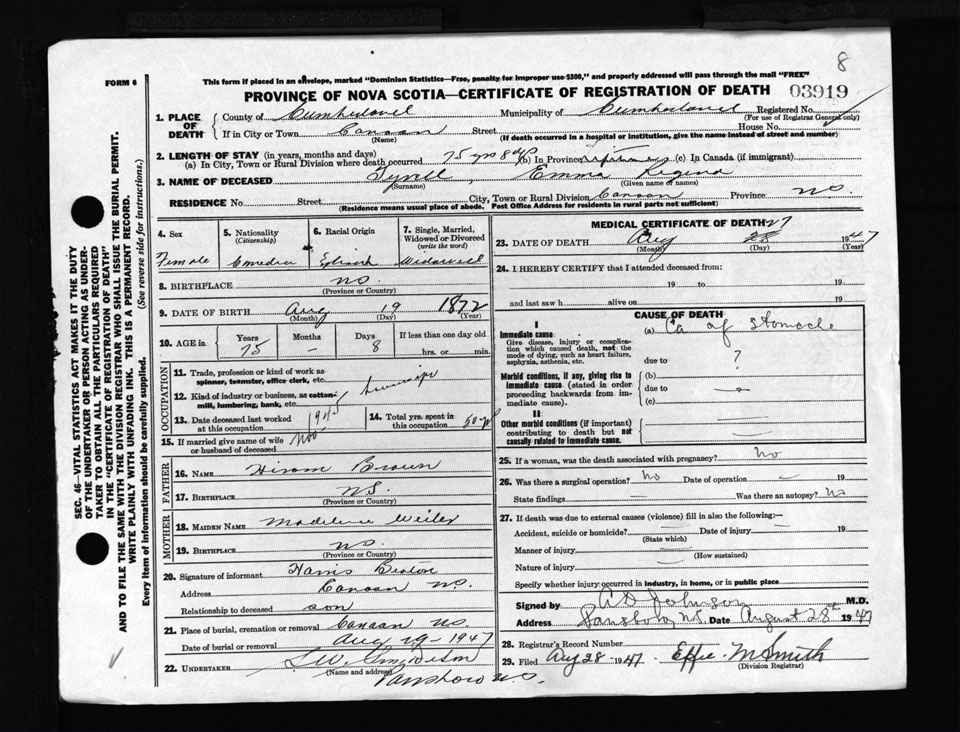 8
FORM 6
This form if placed in an envelope, marked "Dominion Statistics—Free, penalty for improper use $300," and properly addressed will pass through the mail "FREE"
PROVINCE OF NOVA SCOTIA—CERTIFICATE OF REGISTRATION OF DEATH 03919
1. PLACE OF DEATH
County of Cumberland Municipality of Cumberland Registered No.
(For use of Registrar General only)
If in City or Town Canaan Street House No.
(Name) (If death occurred in a hospital or institution, give the name instead of street and number)
2. LENGTH OF STAY (in years, months and days)
(a) In City, Town or Rural Division where death occurred 75 yrs 8 dys (b) In Province (c) In Canada (if immigrant)
3. NAME OF DECEASED Emma
(Surname) (Given name or names)
RESIDENCE No. Street City, Town or Rural Division Canaan Province N.S.
(Residence means usual place of abode. Post Office Address for residents in rural parts not sufficient)
4. Sex
Female
5. Nationality
(Citizenship)
6. Racial Origin
7. Single, Married, Widowed or Divorced
(write the word)
Widowed
8. BIRTHPLACE NS
(Province or Country)
9. DATE OF BIRTH Aug 19 1872
(Month) (Day) (Year)
10. AGE in
Years
75
Months
—
Days
8
If less than one day old
hrs. or min.
OCCUPATION
11. Trade, profession or kind of work as spinner, teamster, office clerk, etc.
12. Kind of industry or business, as cotton-mill, lumbering, bank, etc.
13. Date deceased last worked at this occupation 1945
14. Total yrs. spent in this occupation 50 yr
15. If married give name of wife or husband of deceased
FATHER
16. NAME Hiram Brown
17. BIRTHPLACE NS.
(Province or Country)
MOTHER
18. MAIDEN NAME
19. BIRTHPLACE NS.
(Province or Country)
20. Signature of informant Harris
Address Canaan NS.
Relationship to deceased son
21. Place of burial, cremation or removal Canaan NS.
Date of burial or removal Aug 29-1947
22. UNDERTAKER
(Name and address)
N.S.
MEDICAL CERTIFICATE OF DEATH
27
23. DATE OF DEATH Aug 28 1947
(Month) (Day) (Year)
24. I HEREBY CERTIFY that I attended deceased from:
19 to 19
and last saw h alive on 19
CAUSE OF DEATH
I
Immediate cause
Give disease, injury or complication which caused death, not the mode of dying, such as heart failure, asphyxia, asthenia, etc.
(a) Ca of stomach
due to ?
Morbid conditions, if any, giving rise to immediate cause (stated in order proceeding backwards from immediate cause).
(b)
due to
(c)
II
Other morbid conditions (if important) contributing to death but not causally related to immediate cause.
25. If a woman, was the death associated with pregnancy? No
26. Was there a surgical operation? No Date of operation 19
State findings Was there an autopsy? No
27. If death was due to external causes (violence) fill in also the following:—
Accident, suicide or homicide? Date of injury 19
(State which)
Manner of injury
(How sustained)
Nature of injury
Specify whether injury occurred in industry, in home, or in public place
Signed by Johnson M.D.
Address N.S. Date August 28th 1947
28. Registrar's Record Number
29. Filed Aug 28 1947 Effie M Smith
(Division Registrar)
SEC. 46—VITAL STATISTICS ACT MAKES IT THE DUTY
OF THE UNDERTAKER OR PERSON ACTING AS UNDER-
TAKER TO OBTAIN ALL THE PARTICULARS REQUIRED
IN THE "CERTIFICATE OF REGISTRATION OF DEATH"
AND TO FILE THE SAME WITH THE DIVISION REGISTRAR WHO SHALL ISSUE THE BURIAL PERMIT.
WRITE PLAINLY WITH UNFADING INK. THIS IS A PERMANENT RECORD.
Every item of information should be carefully supplied. (See reverse side for instructions.)